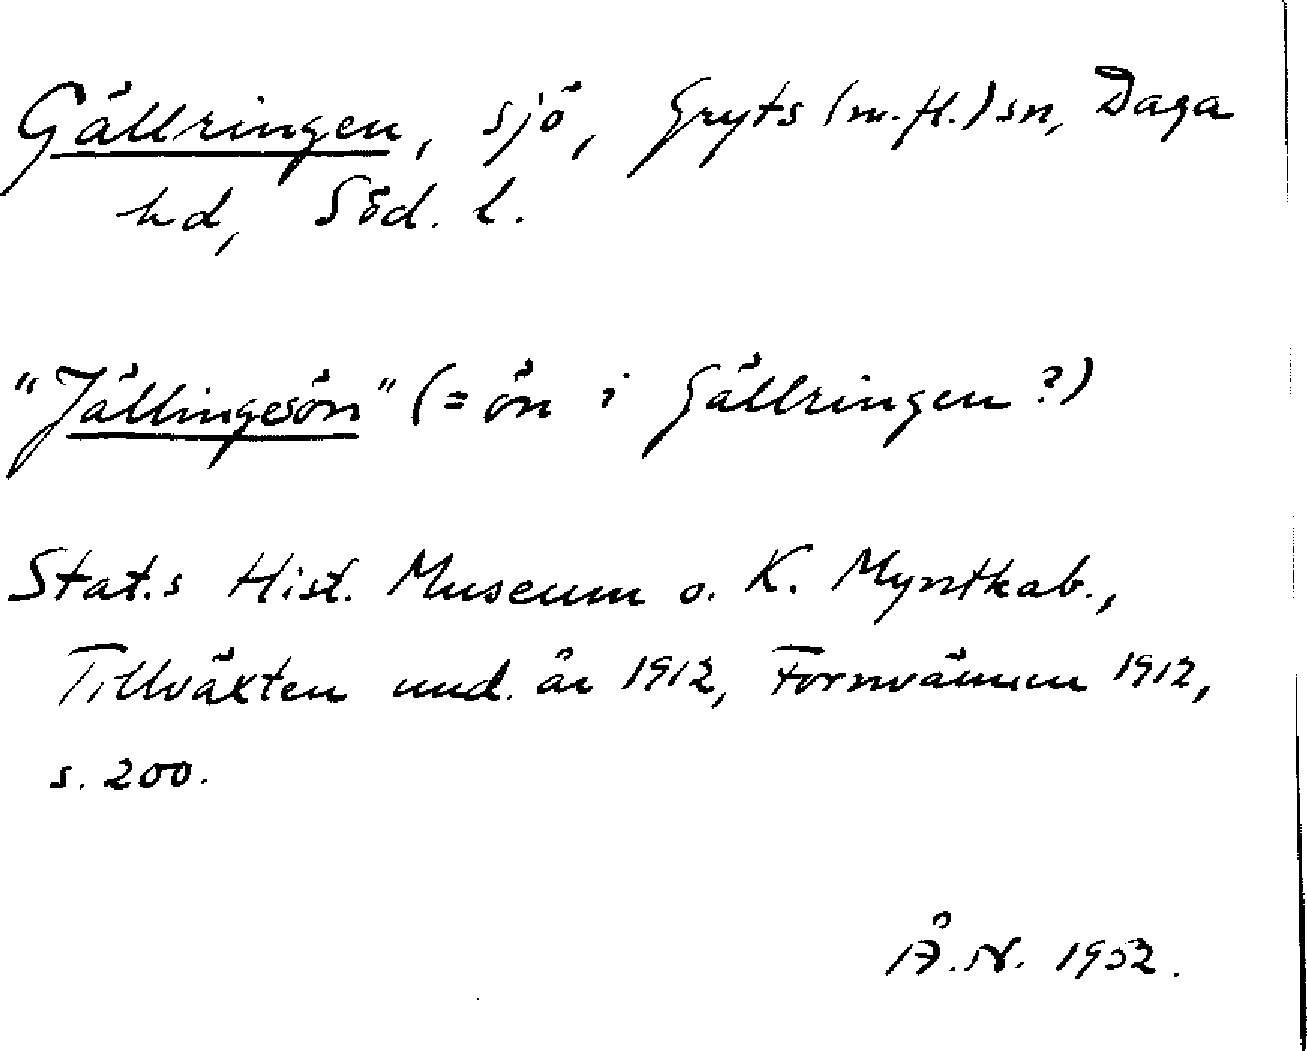 Gällringen, sjö, Gryts (m.fl.) sn, Daga
hd, Söd. l.
"Jällingeön" (= ön i Gällringen?)
Stat.s Hist. Museum o. K. Myntkab.,
Tillväxten und. år 1912, Fornvännen 1912,
s. 200.
Å.N. 1952.